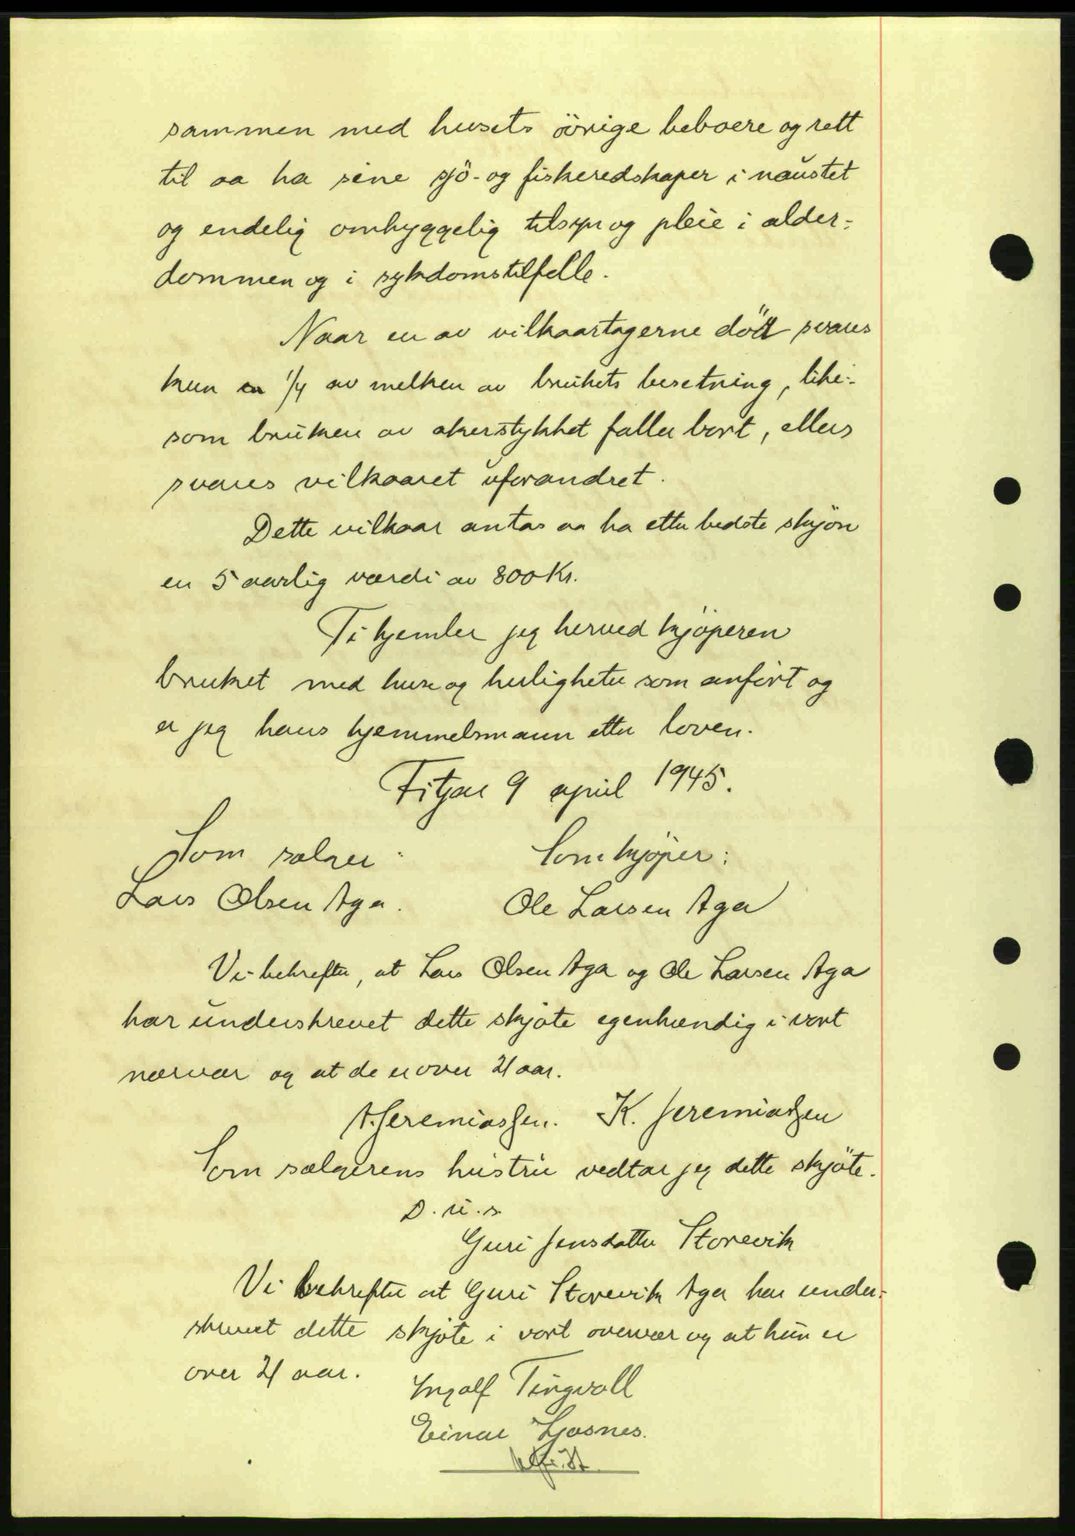 sammen med husets övrige beboere og rett
til aa ha sine sjö- og fiskeredskaper i naustet
og endelig omhyggelig tilsyn og pleie i alder-
dommen og i sykdomstilfelle.
Naar en av vilkaartagerne dör svares
kun 1/4 av melken av brukets besetning, like-
som bruken av akerstykket faller bort, ellers
svares vilkaaret uforandret.
Dette vilkaar antas aa ha etter bedste skjön
en 5 aarlig værdi av 800 Kr.
Ti hjemler jeg herved kjöperen
bruket med huse og herligheter som anfört og
er jeg hans hjemmelsmann etter loven.
Fitjar 9 april 1945.
Som sælger: Som kjöper:
Lars Olsen Aga. Ole Larsen Aga
Vi bekrefter, at Lars Olsen Aga og Ole Larsen Aga
har underskrevet dette skjöte egenhændig i vort
nærvær og at de er over 21 aar.
A. Jeremiassen. K. Jeremiassen
Som sælgerens hustru vedtar jeg dette skjöte.
D.u.s.
Guri Jensdatter Storevik
Vi bekrefter at Guri Storevik Aga har under-
skrevet dette skjöte i vort overvær og at hun er
over 21 aar.
Ingolf Tingvoll
Einar Ljosnes.